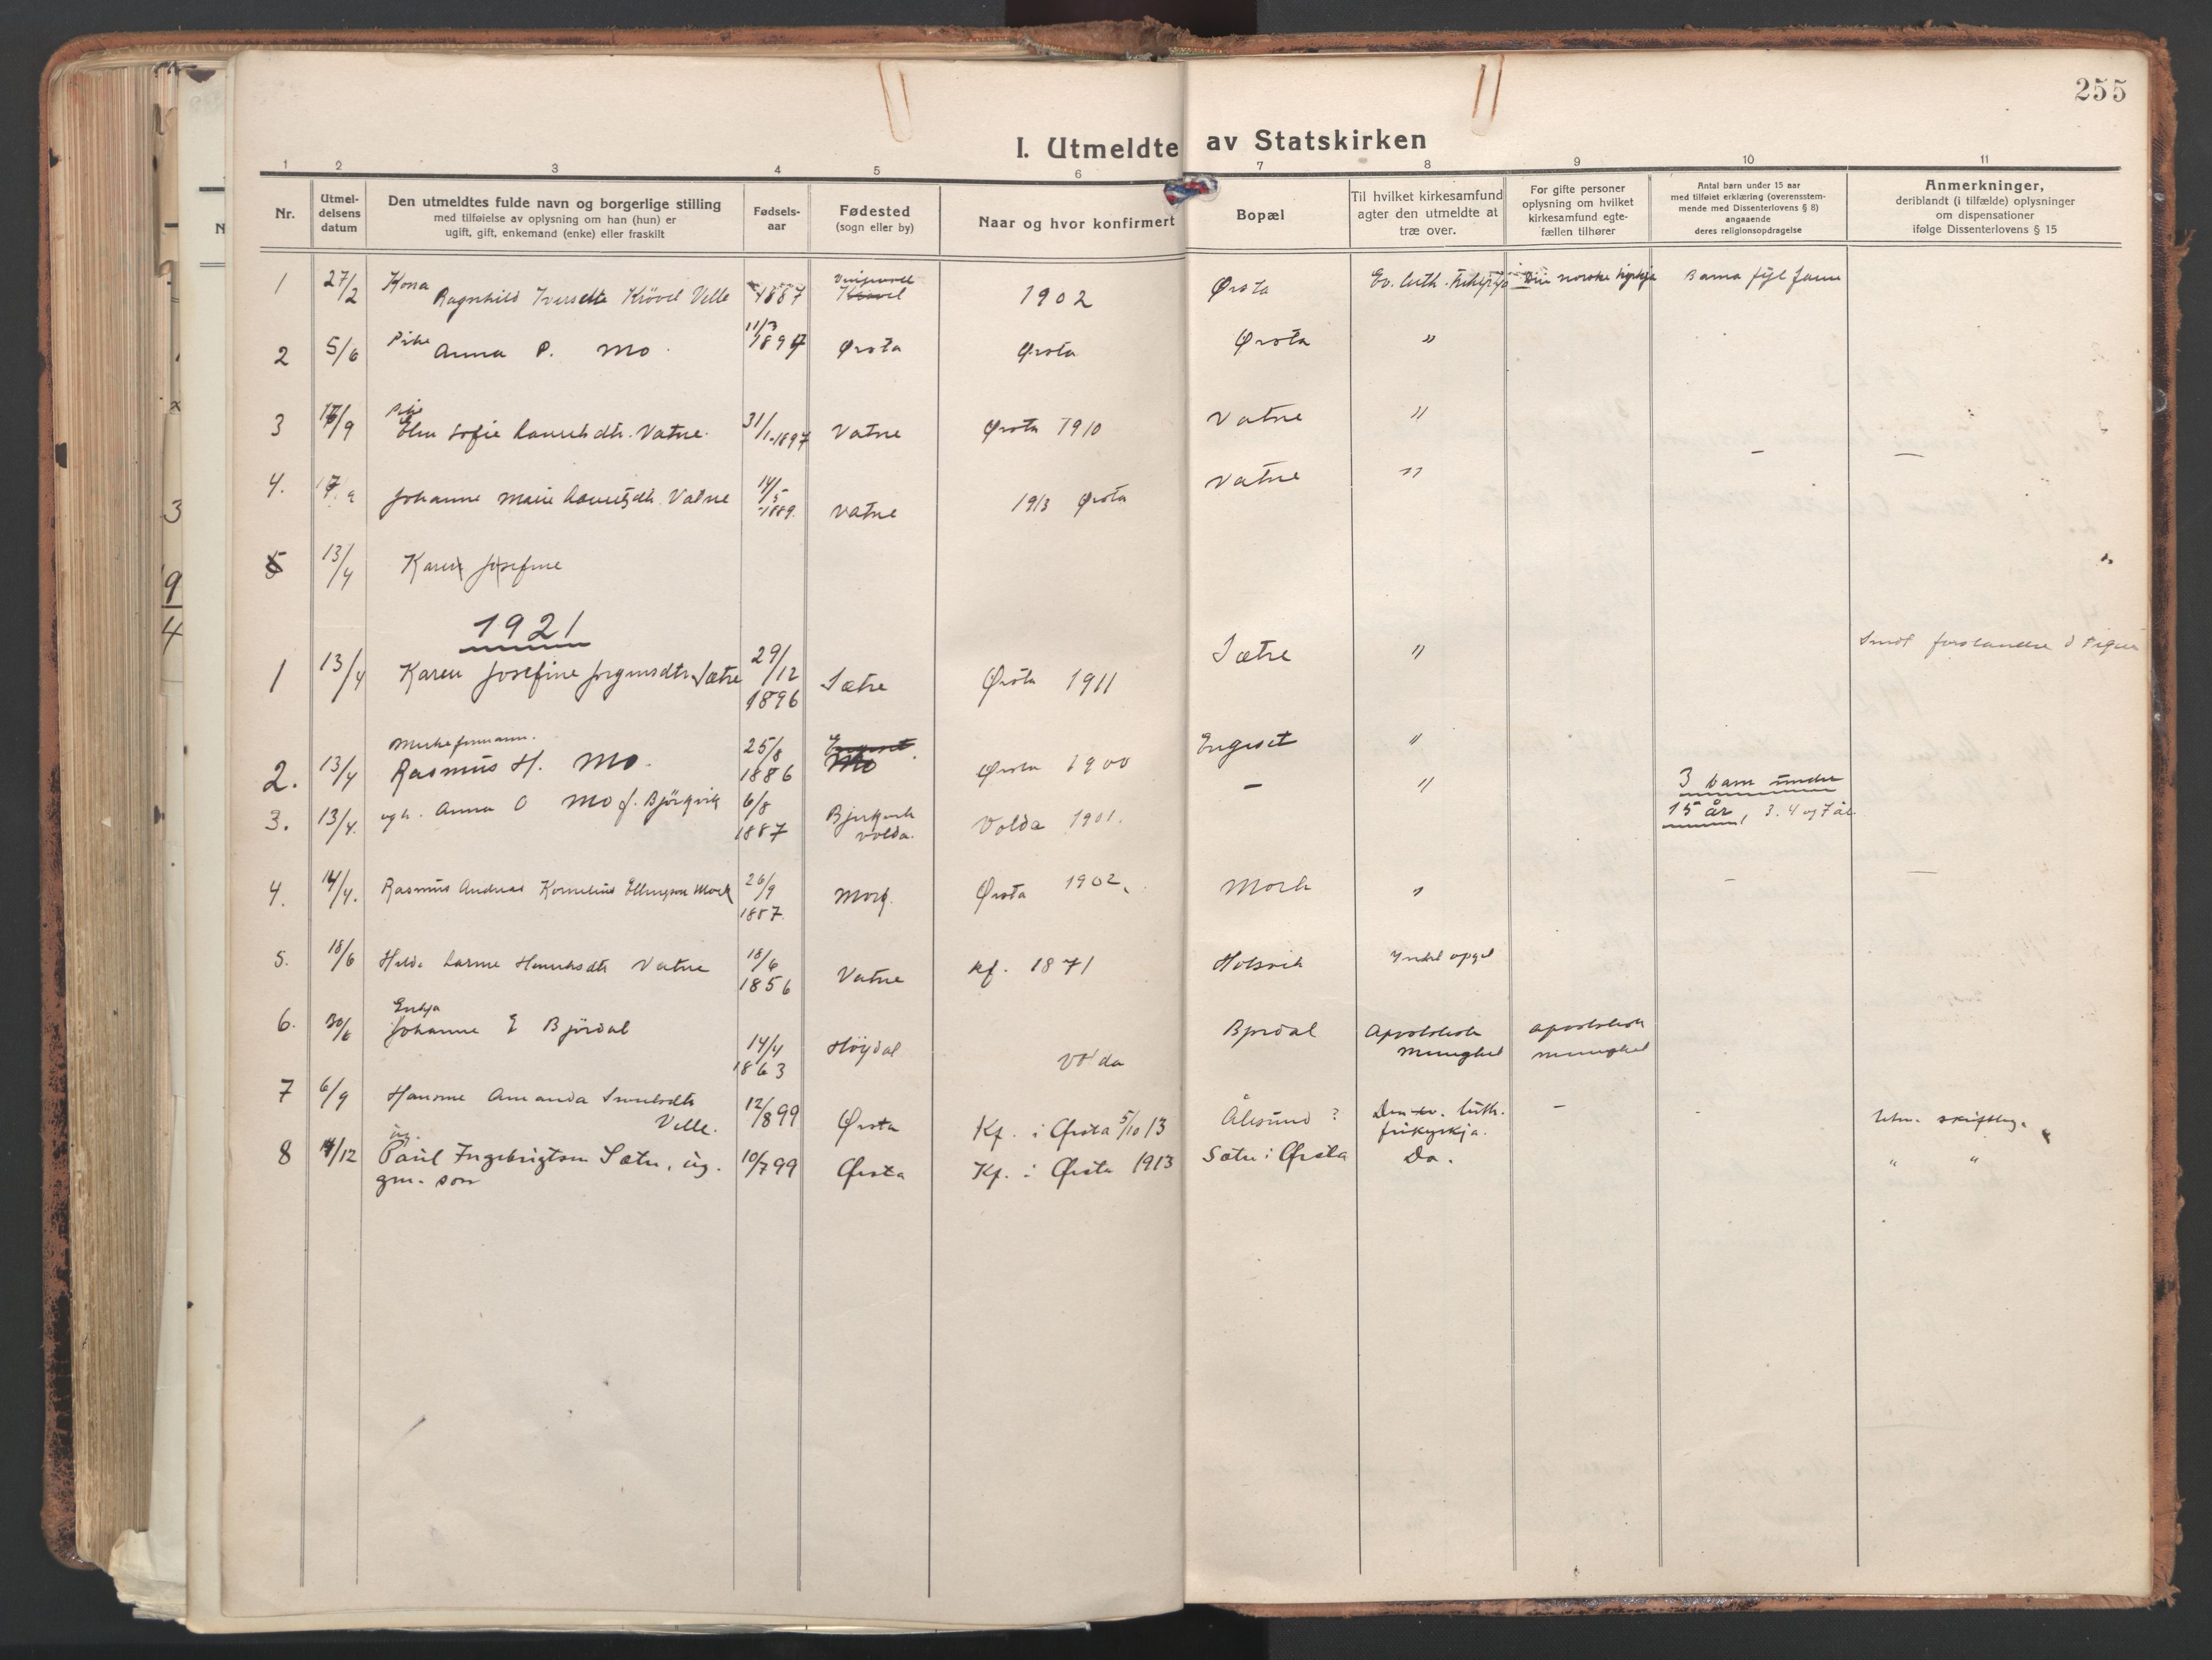 255
I. Utmeldte av Statskirken
1 2 3 4 5 6 7 8 9 10 11
Nr.
Utmel-
delsens
datum
Den utmeldtes fulde navn og borgerlige stilling
med tilføielse av oplysning om han (hun) er
ugift, gift, enkemand (enke) eller fraskilt
Fødsels-
aar
Fødested
(sogn eller by)
Naar og hvor konfirmert
Bopæl
Til hvilket kirkesamfund
agter den utmeldte at
træ over.
For gifte personer
oplysning om hvilket
kirkesamfund egte-
fællen tilhører
Antal barn under 15 aar
med tilføiet erklæring (overensstem-
mende med Dissenterlovens § 8)
angaaende
deres religionsopdragelse
Anmerkninger,
deriblandt (i tilfælde) oplysninger
om dispensationer
ifølge Dissenterlovens § 15
1 27/2 Kona
Ragnhild Iversdtr Krövel Velle 1887 1902 Ørsta Ev. luth. norske kyrkje Barna fylgje
2 5/6 Pike Anna P. Mo 11/3 Ørsta Ørsta Ørsta "
3 17/9 Pike
Sofie Lauritsdtr. Vatne 31/1-1897 Vatne Ørsta 1910 Vatne "
4. 17/9 Johanne Marie Lauritsdtr. Vatne 14/5 1889. Vatne 1913 Ørsta Vatne "
5 13/4 Karen Josefine
1921
1 13/4 Karen Josefine Jørgensdtr. Sætre 29/12 1896 Sætre Ørsta 1911 Sætre "
2. 13/4 Rasmus H. Mo. 25/8 1886 Mo Ørsta 1900 Engeset "
3. 13/4. og h. Anna O Mo f. Björkvik 6/8 1887 Volda. Volda 1901. — " 3 barn under
15 år, 3. 4 og 7 år
4. 14/4. Rasmus Andreas Kornelius Ellingson Mork 26/9 1887 Mork Ørsta 1902. Mork "
5. 18/6 Vatne 18/6 1856 Vatne kf. 1871 Holsvik
6. 30/6 Enkja
Johanne E Bjørdal 14/4 1863 Höydal Volda Bjørdal Apostolisk apostolisk
menighet menighet
7 6/9 Hansine Amanda
Velle. 12/8 99 Ørsta Kf. i Ørsta 5/10 13 Ålesund ? Den ev. luth.
frikyrkja. — Utm. skriftleg.
8 4/12 Paul Ingebrigtson Sætre, ug.
gm. son 10/7 99 Ørsta Kf. i Ørsta 1913 Sætre i Ørsta Do. " "